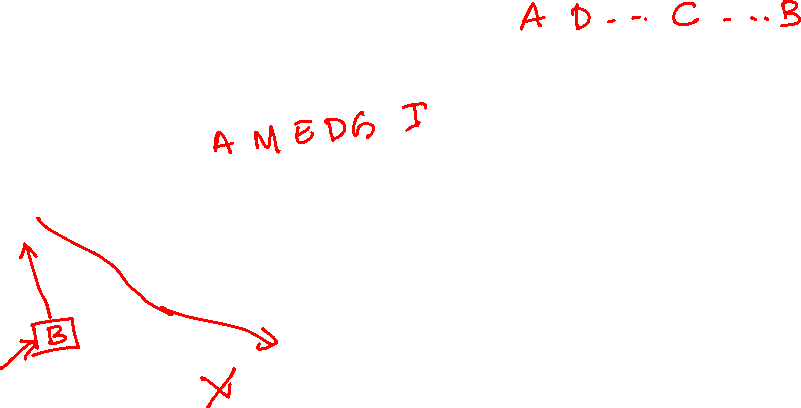 A D ... C ... B
A M E D G I
B
X